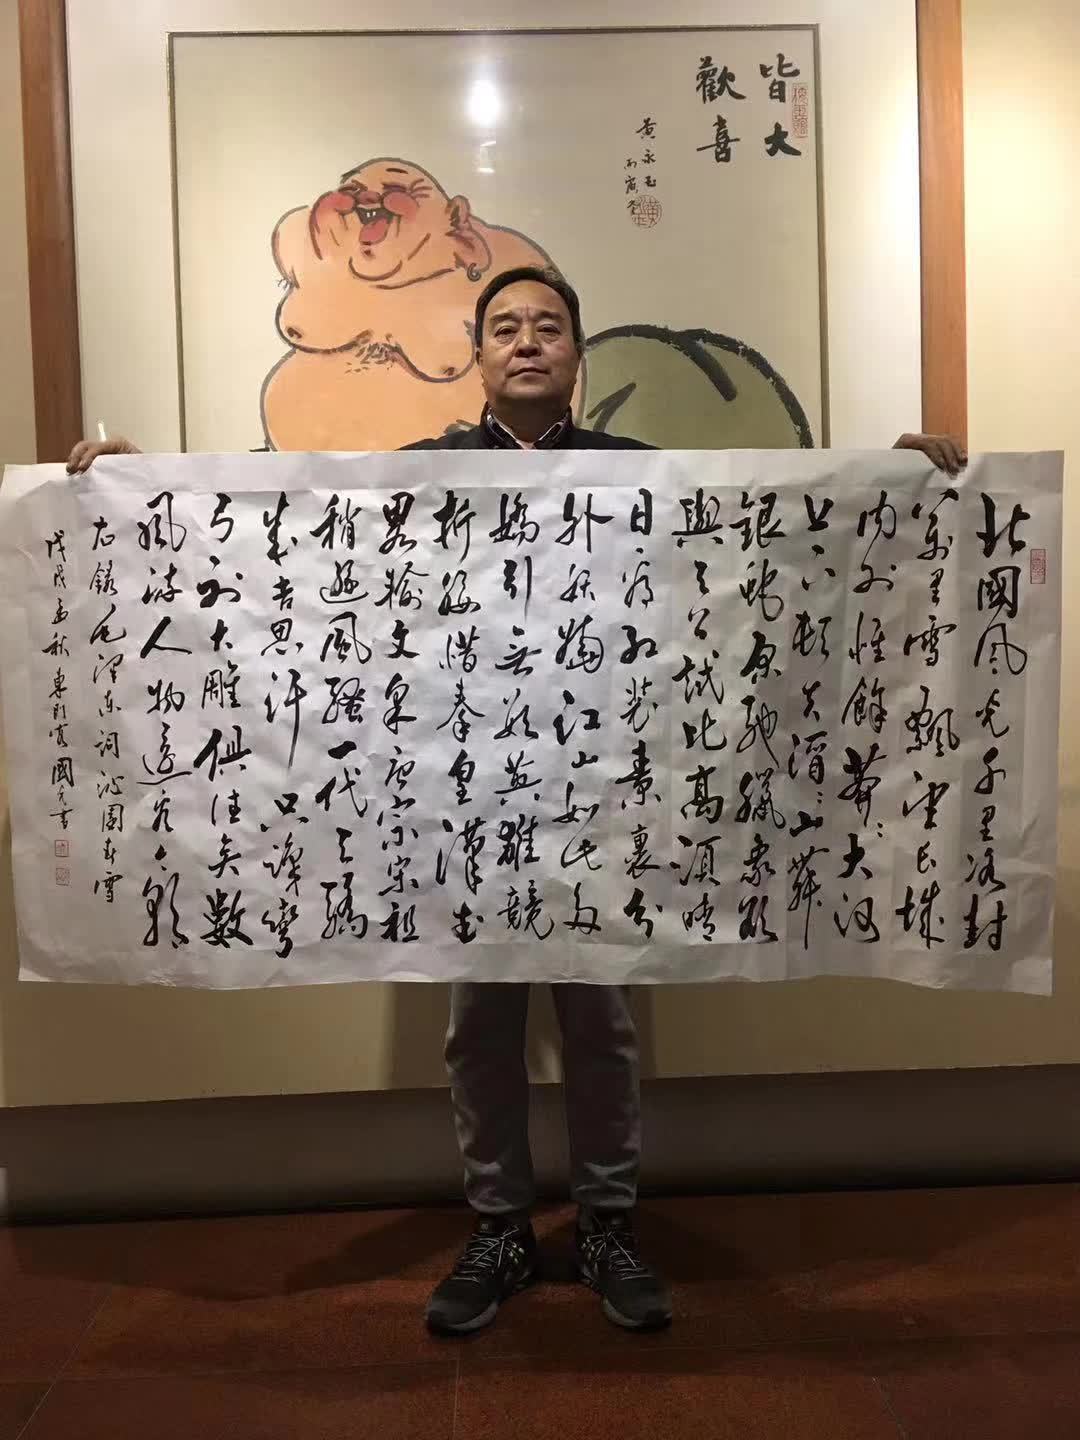 皆大
歡喜
黄永玉
丙寅冬
北國風光千里冰封
萬里雪飄望長城
内外惟餘莽〻大河
上下頓失滔〻山舞
銀蛇原馳臘象欲
與天公試比高須晴
日看紅裝素裹分
外妖嬈江山如此多
嬌引無數英雄競
折腰惜秦皇漢武
畧輸文采唐宗宋祖
稍遜風騷一代天驕
成吉思汗只識彎
弓射大雕俱往矣數
風流人物還看今朝
右錄毛澤東詞沁園春雪
戊戌孟秋 國 書